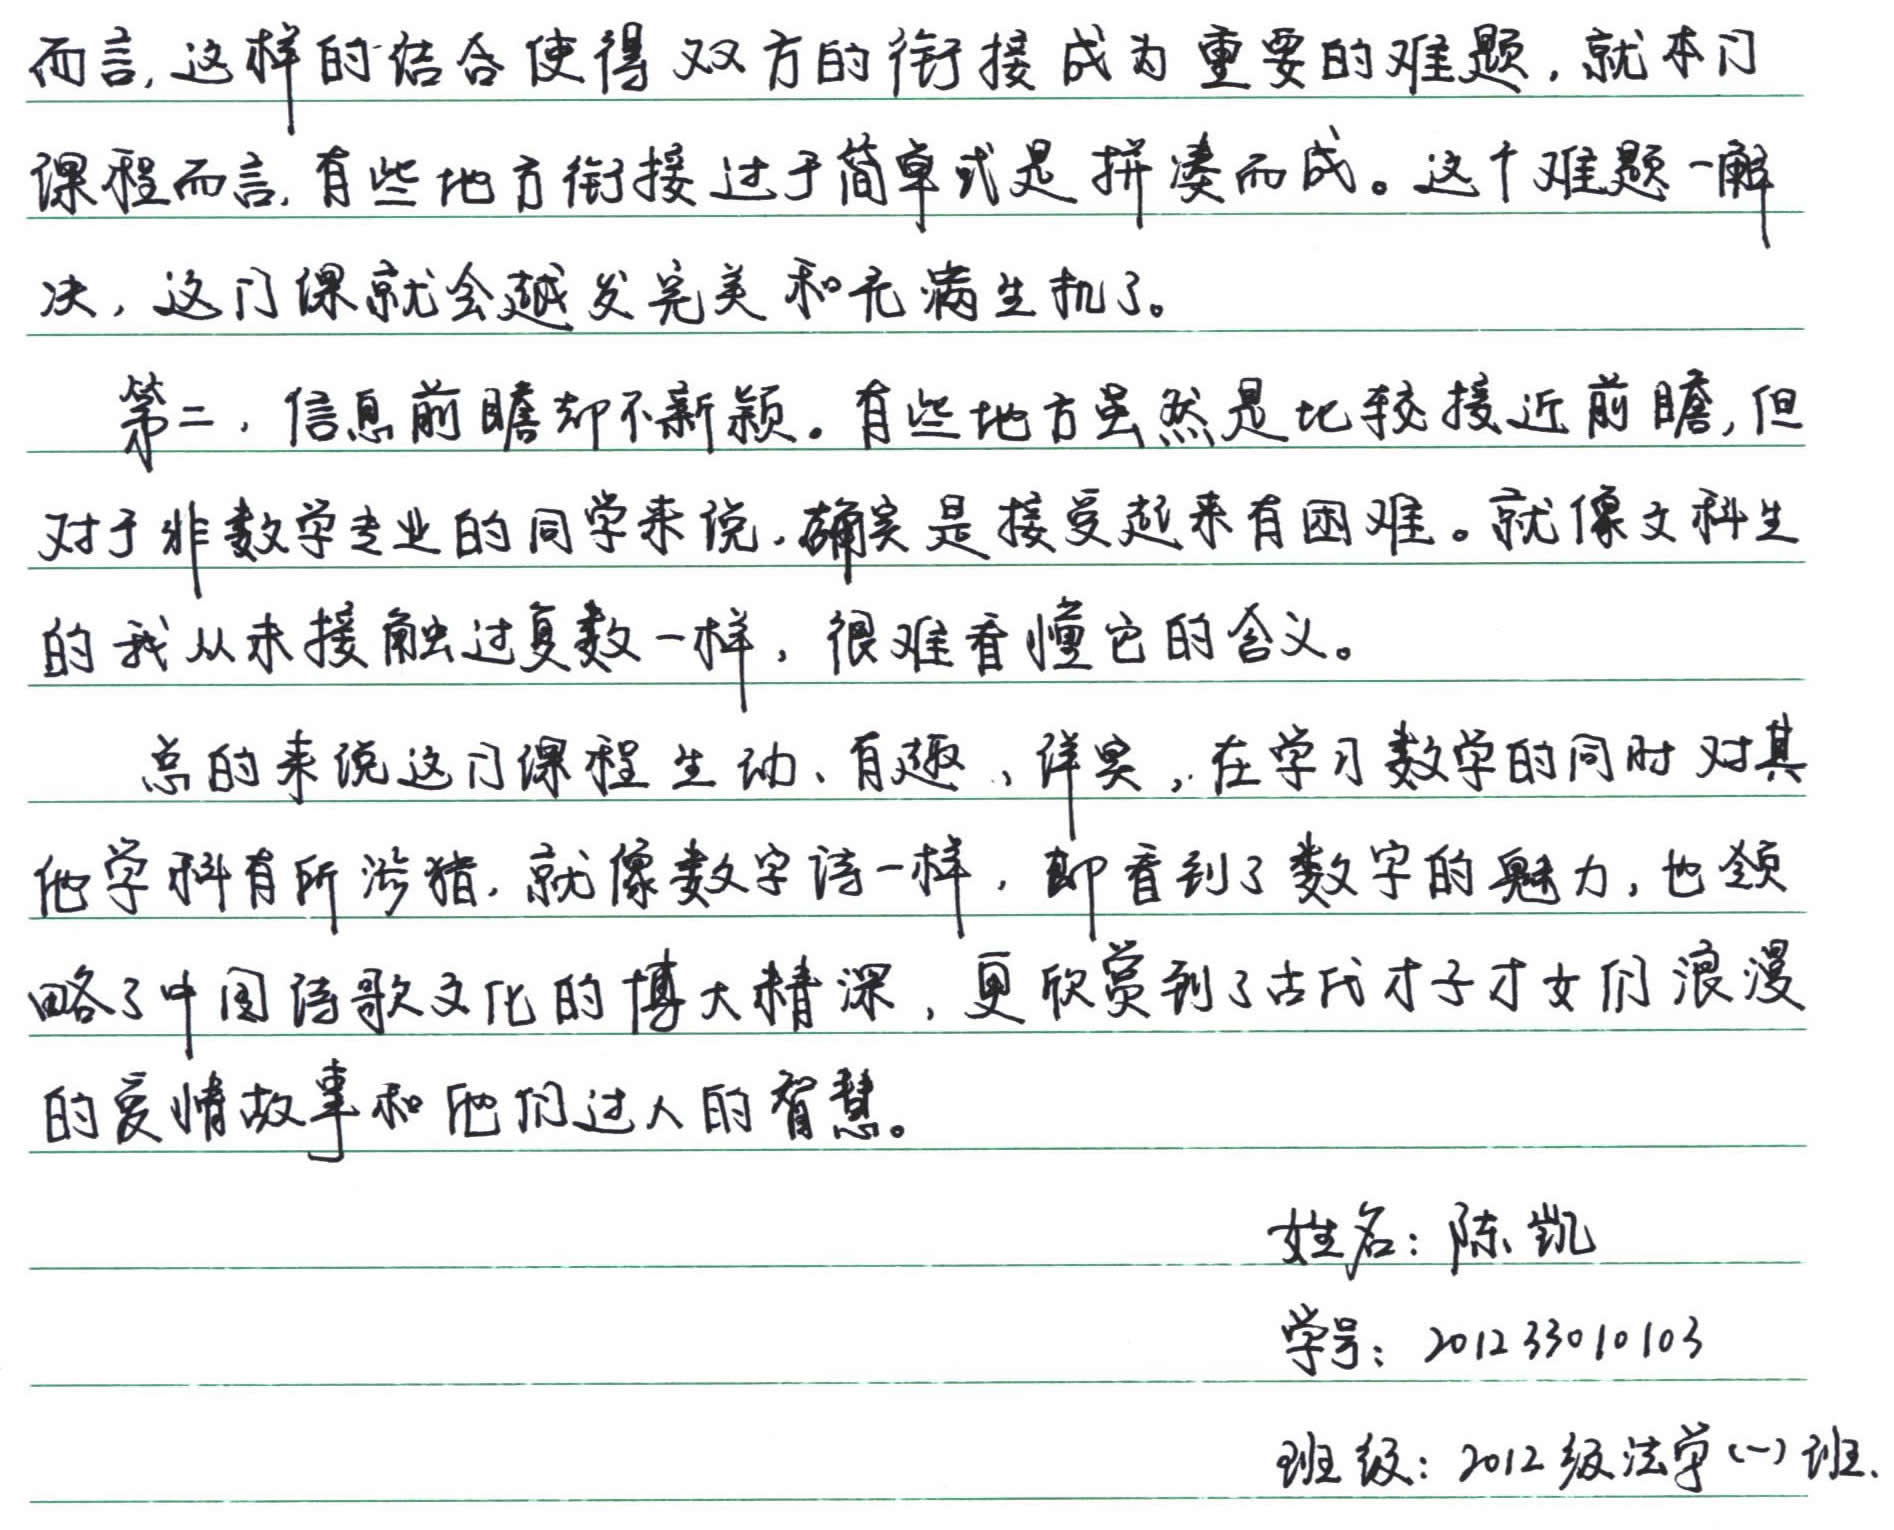 而言,这样的结合使得双方的衔接成为重要的难题,就本门
课程而言,有些地方衔接过于简单或是拼凑而成。这个难题一解
决,这门课就会越发完美和充满生机了。
第二,信息前瞻却不新颖。有些地方虽然是比较接近前瞻,但
对于非数学专业的同学来说,确实是接受起来有困难。就像文科生
的我从未接触过复数一样,很难看懂它的含义。
总的来说这门课程生动、有趣、详实,在学习数学的同时对其
他学科有所涉猎,就像数字诗一样,即看到了数字的魅力,也领
略了中国诗歌文化的博大精深,更欣赏到了古代才子才女们浪漫
的爱情故事和他们过人的智慧。
姓名:陈凯
学号:201233010103
班级:2012级法学(一)班.